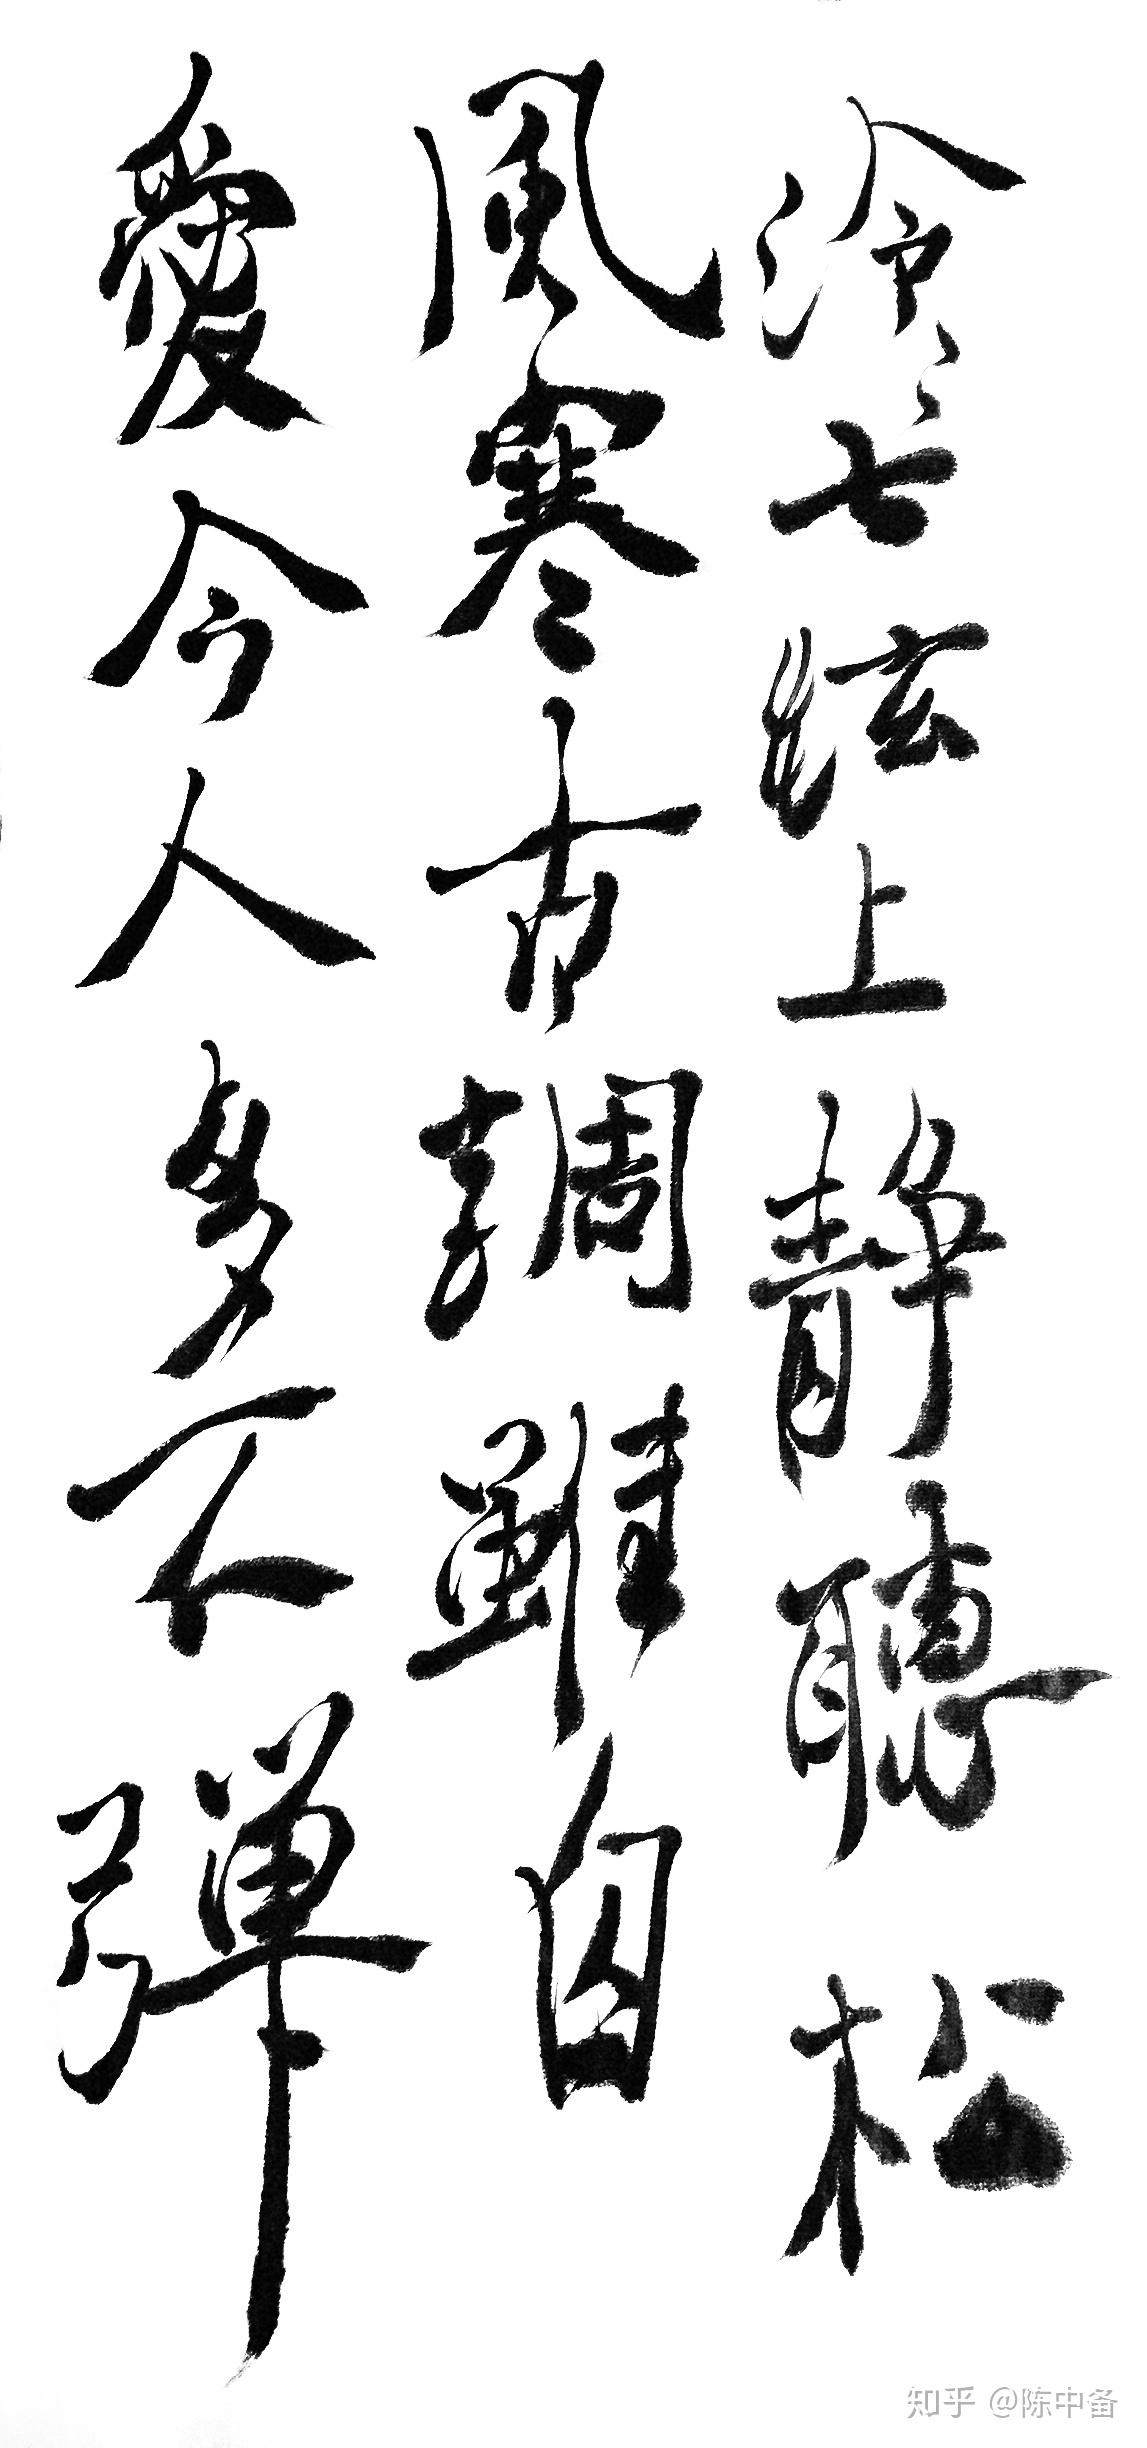 泠〻七絃上静聽松
風寒古調雖自
愛今人多不彈
知乎 @陈中备